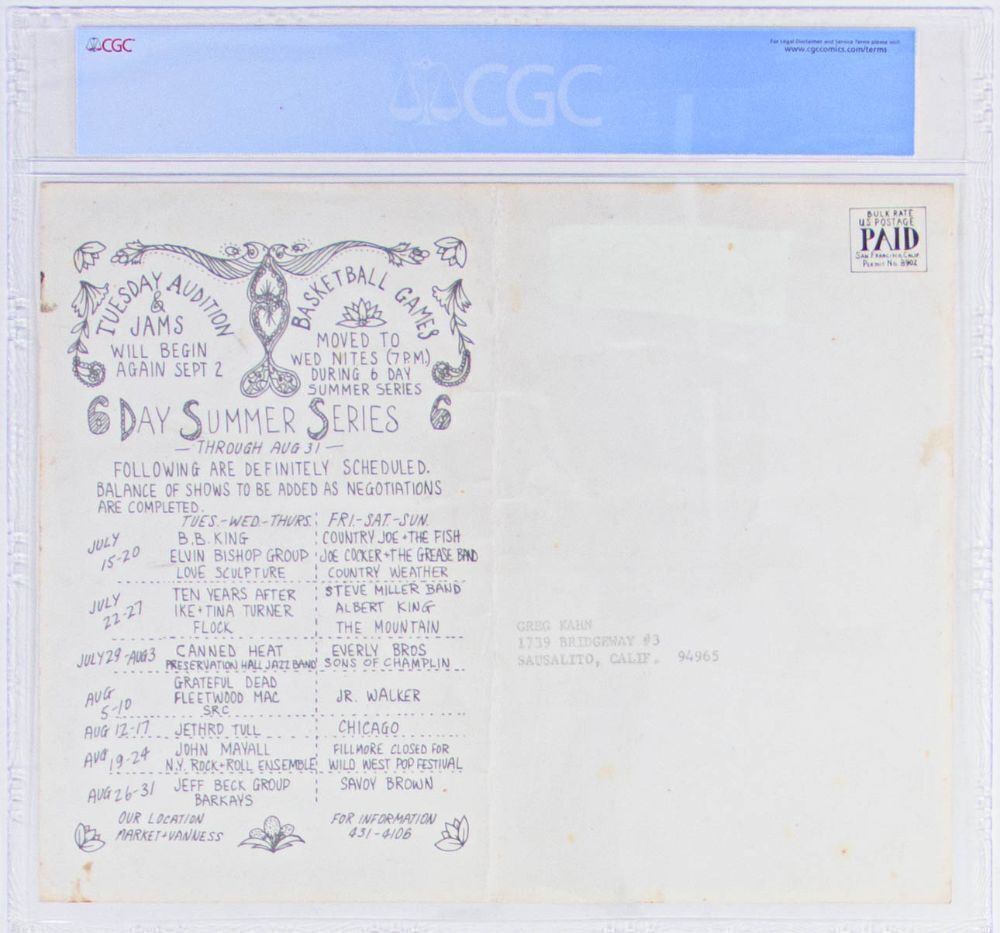 CGC
For Legal Disclaimer and Service Terms please visit
www.cgccomics.com/terms
CGC
BULK RATE
U.S. POSTAGE
PAID
SAN FRANCISCO, CALIF.
PERMIT NO. 8902
TUESDAY AUDITION
&
JAMS
WILL BEGIN
AGAIN SEPT 2
BASKETBALL GAMES
MOVED TO
WED NITES (7 P.M.)
DURING 6 DAY
SUMMER SERIES
6 DAY SUMMER SERIES 6
— THROUGH AUG 31 —
FOLLOWING ARE DEFINITELY SCHEDULED.
BALANCE OF SHOWS TO BE ADDED AS NEGOTIATIONS
ARE COMPLETED.
TUES.-WED.-THURS. FRI.-SAT.-SUN.
JULY 15-20
B.B. KING COUNTRY JOE + THE FISH
ELVIN BISHOP GROUP JOE COCKER + THE GREASE BAND
LOVE SCULPTURE COUNTRY WEATHER
JULY 22-27
TEN YEARS AFTER STEVE MILLER BAND
IKE + TINA TURNER ALBERT KING
FLOCK THE MOUNTAIN
JULY 29-AUG 3
CANNED HEAT EVERLY BROS
PRESERVATION HALL JAZZ BAND SONS OF CHAMPLIN
AUG 5-10
GRATEFUL DEAD
FLEETWOOD MAC JR. WALKER
SRC
AUG 12-17 JETHRO TULL CHICAGO
AUG 19-24
JOHN MAYALL FILLMORE CLOSED FOR
N.Y. ROCK + ROLL ENSEMBLE WILD WEST POP FESTIVAL
AUG 26-31
JEFF BECK GROUP SAVOY BROWN
BARKAYS
OUR LOCATION
MARKET + VANNESS
FOR INFORMATION
431-4106
GREG KAHN
1739 BRIDGEWAY #3
SAUSALITO, CALIF. 94965